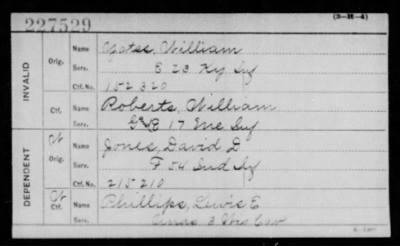 (3-H-4)
227529
INVALID
Orig.
Name Yates, William
Serv. E 23 Ky Inf
Ctf. No. 152320
Ctf.
Name Roberts, William
Serv. 17 Inf
DEPENDENT
Orig.
Name Jones, David D
Serv. F 54 Ind Inf
Ctf. No. 215210
Ctf.
Name Phillips, Lewis E
Serv. 3 Ohio Cav